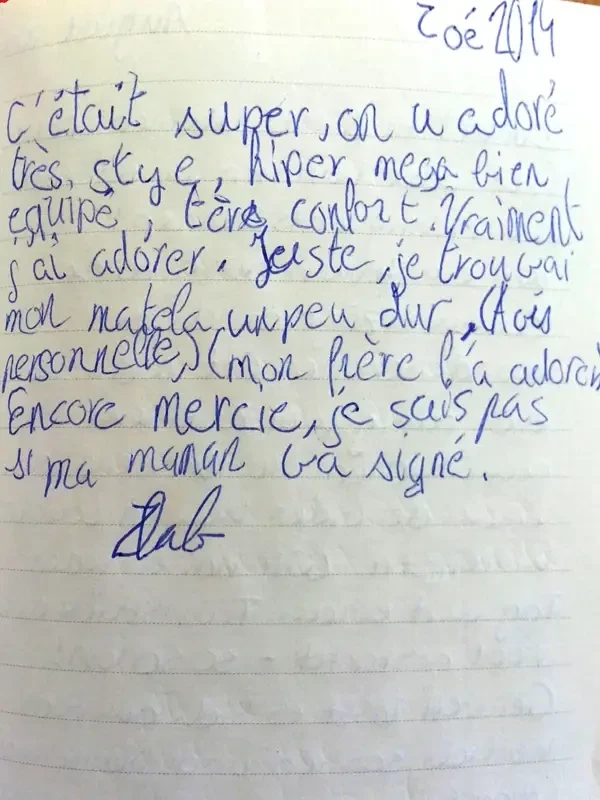 Zoé 2014
C'était super, on a adoré
très, stye, hiper mega bien
equipé, tèrs confort. Vraiment
j'ai adórer. Juste, je trouvai
mon matela un peu dur, (Avis
personnelle) (mon frère l'a adorer)
Encore mercie, je sais pas
si ma maman va signé.